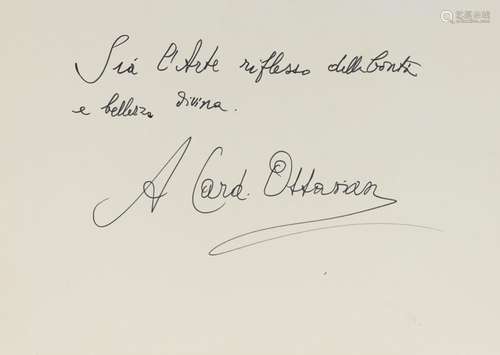 Sia l'Arte riflesso della bontà
e bellezza divina.
A Card. Ottaviani